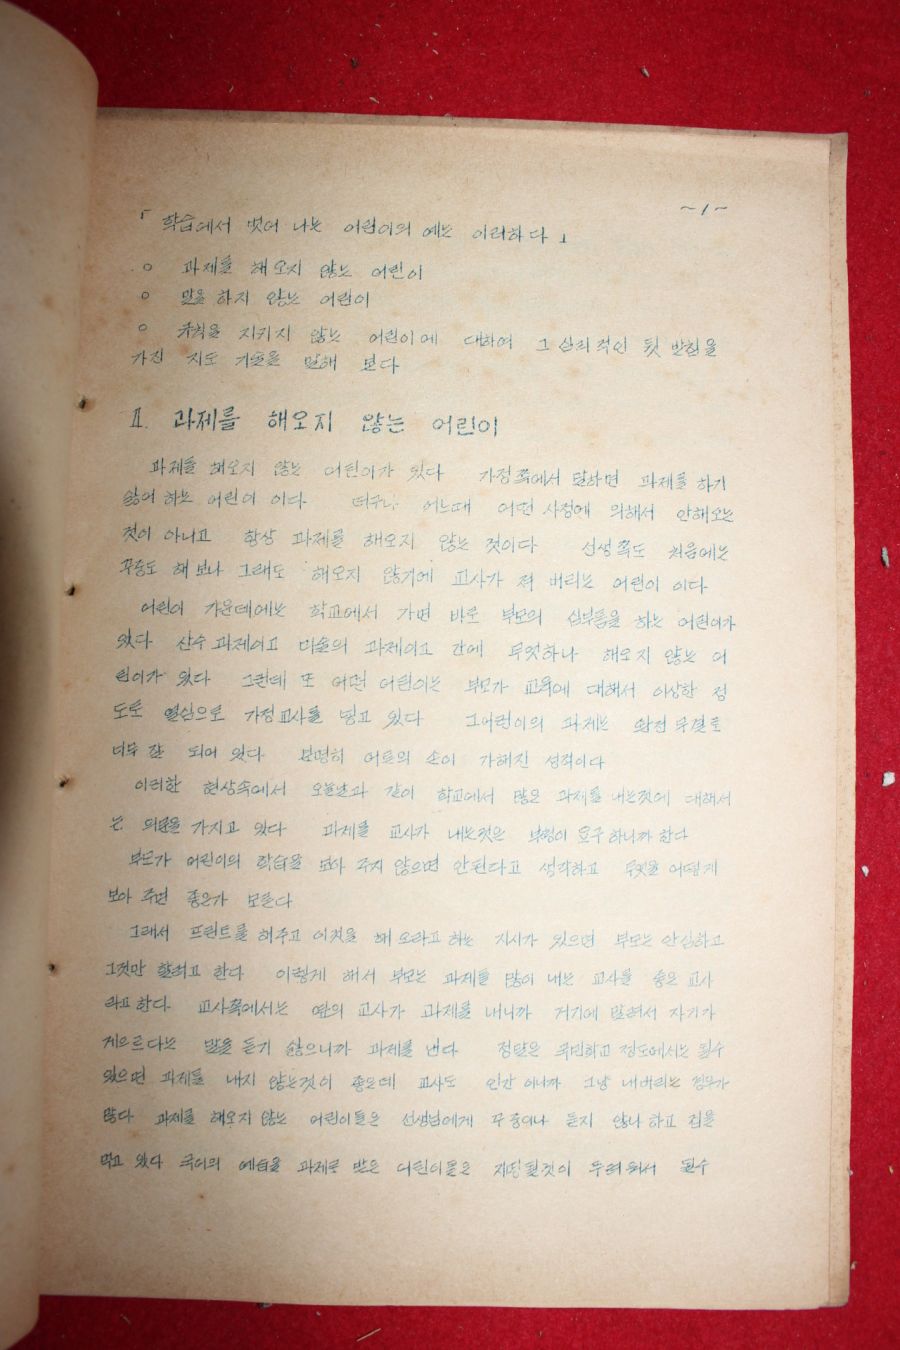 ~1~
「학습에서 벗어 나는 어린이의 예는 이러하다」
○ 과제를 해오지 않는 어린이
○ 말을 하지 않는 어린이
○ 규칙을 지키지 않는 어린이에 대하여 그 심리적인 뒷 받침을
가진 지도 기술을 말해 보다
Ⅱ. 과제를 해오지 않는 어린이
과제를 해오지 않는 어린이가 있다 가정쪽에서 말하면 과제를 하기
싫어 하는 어린이 이다 더구나 어느때 어떤 사정에 의해서 안해오는
것이 아니고 항상 과제를 해오지 않는 것이다 선생쪽도 처음에는
꾸중도 해 보나 그래도 해오지 않기에 교사가 져 버리는 어린이 이다
어린이 가운데에는 학교에서 가면 바로 부모의 심부름을 하는 어린이가
있다 산수 과제이고 미술의 과제이고 간에 무엇하나 해오지 않는 어
린이가 있다 그런데 또 어떤 어린이는 부모가 교육에 대해서 이상한 정
도로 열심으로 가정교사를 넣고 있다 그어린이의 과제는 완전 무결로
너무 잘 되어 있다 분명히 어른의 손이 가해진 성적이다
이러한 현상속에서 오늘날과 같이 학교에서 많은 과제를 내는것에 대해서
는 의문을 가지고 있다 과제를 교사가 내는것은 부형이 요구하니까 한다
부모가 어린이의 학습을 보아 주지 않으면 안된다고 생각하고 무엇을 어떻게
보아 주면 좋은가 모른다
그래서 프린트를 해주고 이것을 해 오라고 하는 지시가 있으면 부모는 안심하고
그것만 할려고 한다 이렇게 해서 부모는 과제를 많이 내는 교사를 좋은 교사
라고 한다 교사쪽에서는 옆의 교사가 과제를 내니까 거기에 말려서 자기가
게으르다는 말을 듣기 싫으니까 과제를 낸다 정말은 국민학교 정도에서는 될수
있으면 과제를 내지 않는것이 좋은데 교사도 인간 이니까 그냥 내버리는 경우가
많다 과제를 해오지 않는 어린이들은 선생님에게 꾸중이나 듣지 않나 하고 겁을
먹고 있다 국어의 예습을 과제로 받은 어린이들은 지명될것이 두려워서 될수